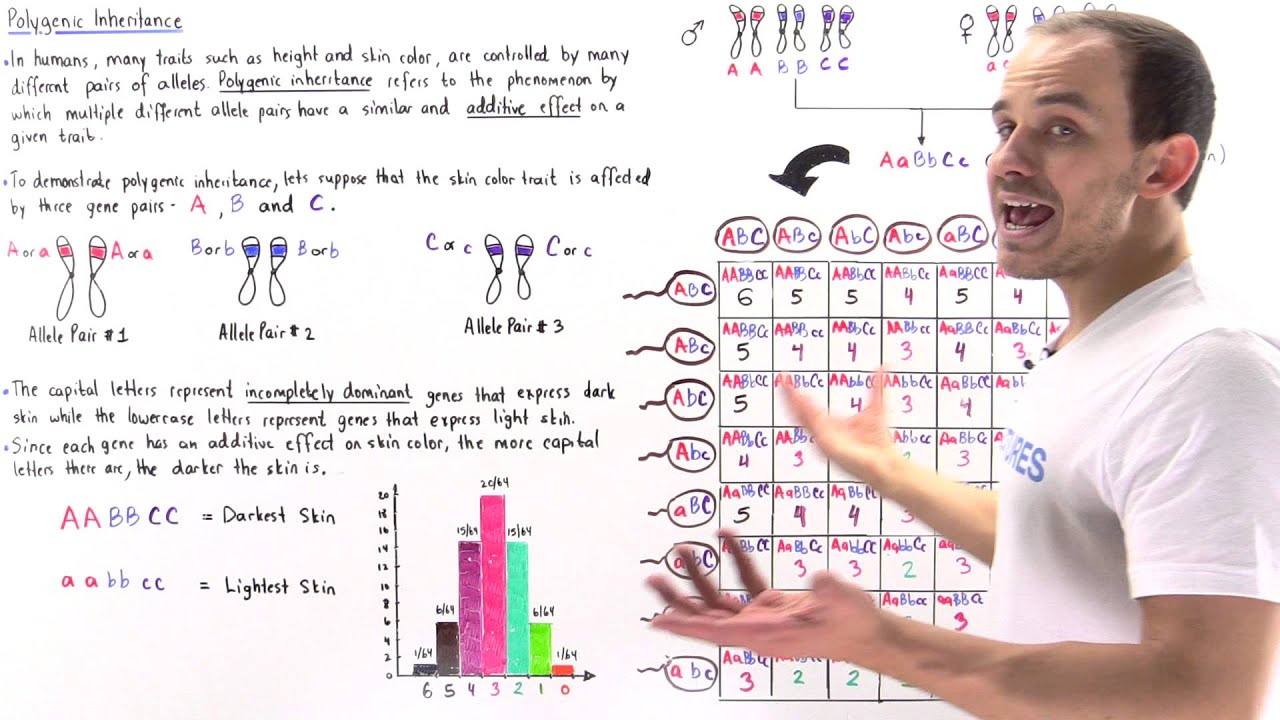 Polygenic Inheritance
• In humans, many traits such as height and skin color, are controlled by many
different pairs of alleles. Polygenic inheritance refers to the phenomenon by
which multiple different allele pairs have a similar and additive effect on a
given trait.
• To demonstrate polygenic inheritance, lets suppose that the skin color trait is affected
by three gene pairs - A, B and C.
A or a A or a
B or b B or b
C or c C or c
Allele Pair #1
Allele Pair #2
Allele Pair #3
• The capital letters represent incompletely dominant genes that express dark
skin while the lowercase letters represent genes that express light skin.
• Since each gene has an additive effect on skin color, the more capital
letters there are, the darker the skin is.
AA BB CC = Darkest Skin
aa bb cc = Lightest Skin
20/64
15/64 15/64
6/64 6/64
1/64 1/64
20
18
16
14
12
10
8
6
4
2
0
6 5 4 3 2 1 0
♂ ♀
A A B B C C a
Aa Bb Cc
ABC ABc AbC Abc aBC
ABC AABBCC AABBCc AABbCC AABbCc AaBBCC
6 5 5 4 5 4
ABc AABBCc AABBcc AABbCc AABbcc AaBBCc AaBbCc
5 4 4 3 4 3
AbC AABbCC AABbCc AAbbCC AAbbCc AaBbCC
5 4 3 4
Abc AABbCc AABbcc AAbbCc AaBbCc
4 3 2 3
aBC AaBBCC AaBBCc AaBbCC
5 4 4 3
abC AaBbCc AabbCC AabbCc
3 3 2 3
AaBbcc aaBBCc
3
abc AaBbCc
3 2 2
URES